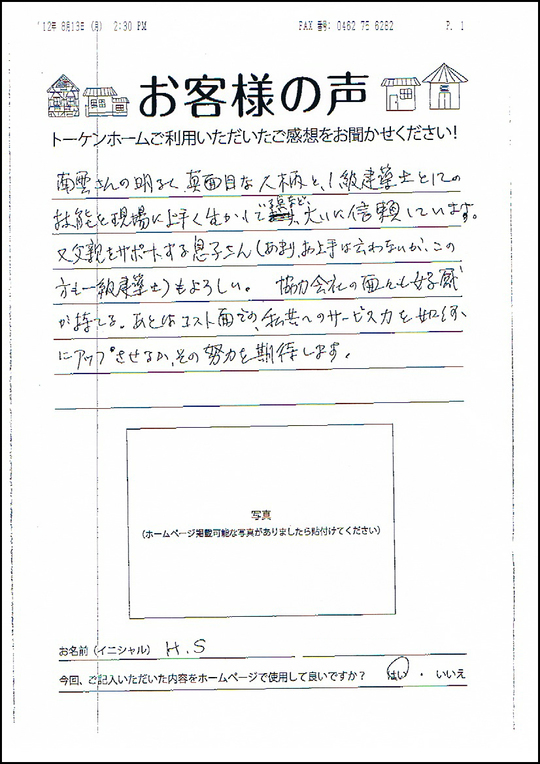 '12年 8月13日 (月) 2:30 PM FAX 番号: 0462 75 6282 P. 1
お客様の声
トーケンホームご利用いただいたご感想をお聞かせください!
南雲さんの明るく真面目な人柄と、1級建築士としての
技能を現場に上手く生かして 大いに信頼しています。
又父親をサポートする息子さん(あまりお上手は云わないが、この
方も一級建築士)もよろしい。 協力会社の面々も好感
が持てる。あとはコスト面での、私共へのサービス力を如何
にアップさせるか、その努力を期待します。
写真
(ホームページ掲載可能な写真がありましたら貼付けてください)
お名前(イニシャル) H.S
今回、ご記入いただいた内容をホームページで使用して良いですか? はい ・ いいえ